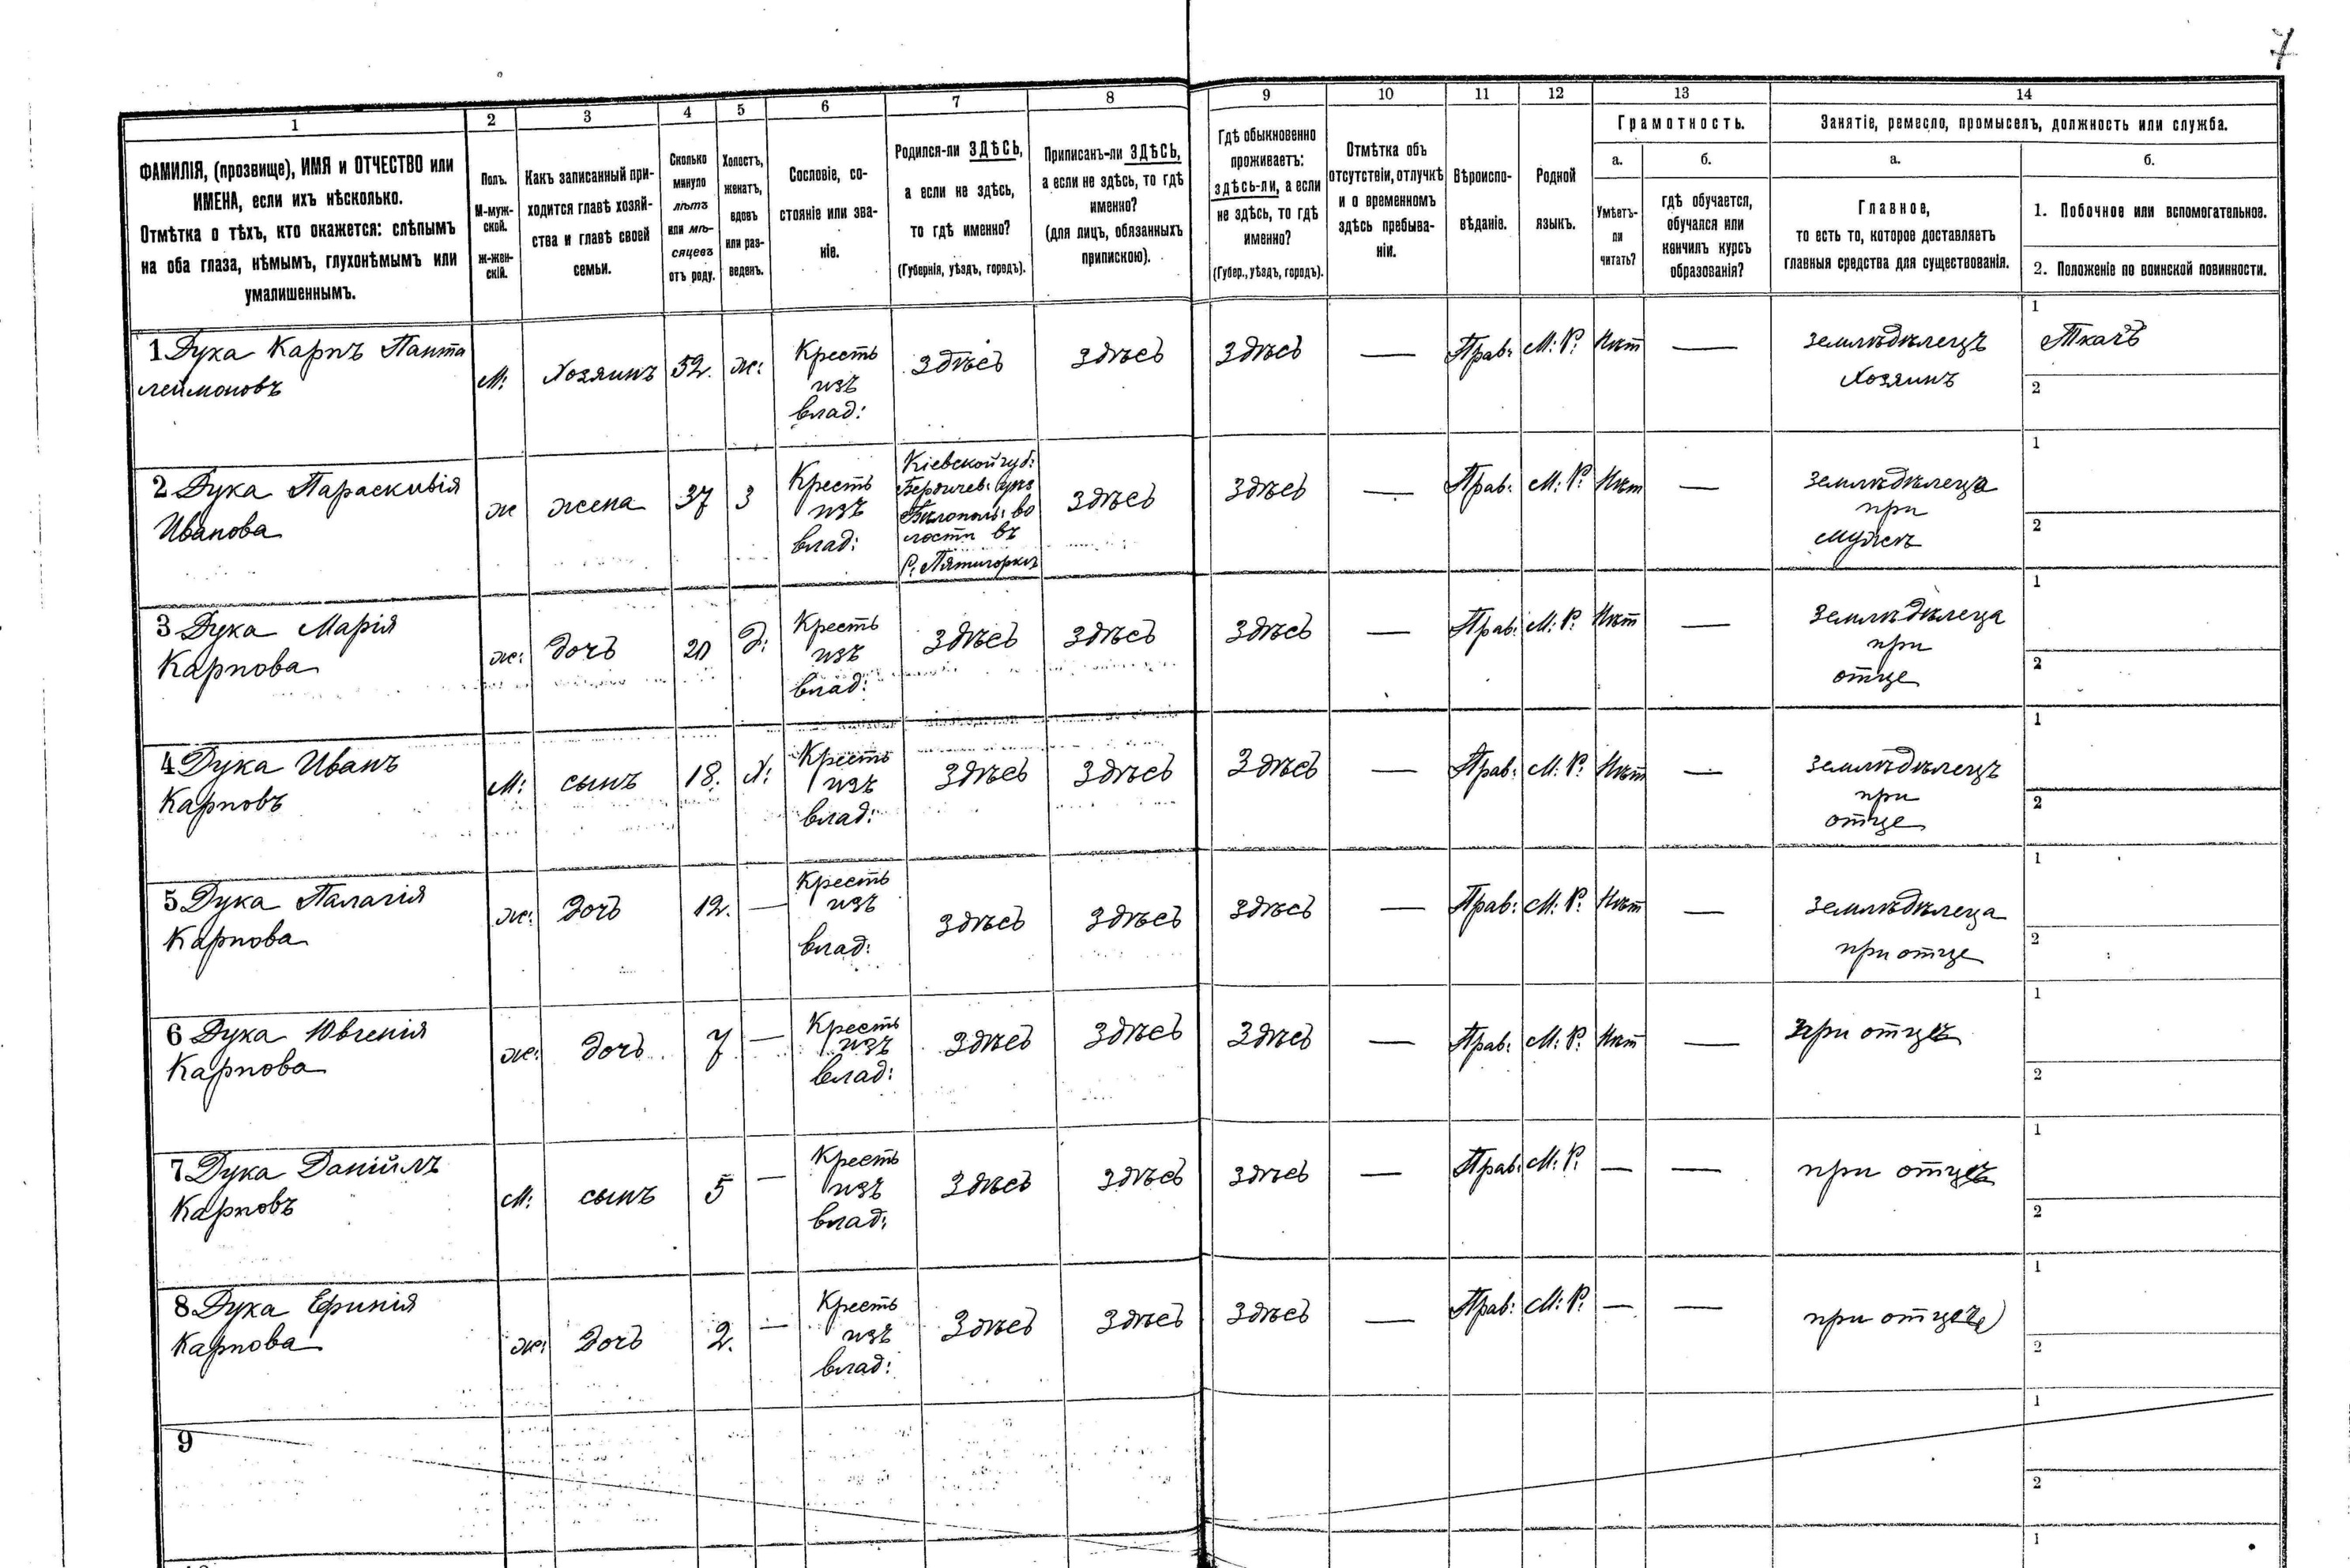 7
1
2
3
4
5
6
7
8
9
10
11
12
13
14
ФАМИЛІЯ, (прозвище), ИМЯ и ОТЧЕСТВО или
ИМЕНА, если ихъ нѣсколько.
Отмѣтка о тѣхъ, кто окажется: слѣпымъ
на оба глаза, нѣмымъ, глухонѣмымъ или
умалишеннымъ.
Полъ.
М-муж-
ской.
Ж-жен-
скій.
Какъ записанный при-
ходится главѣ хозяй-
ства и главѣ своей
семьи.
Сколько
минуло
лѣтъ
или мѣ-
сяцевъ
отъ роду.
Холостъ,
женатъ,
вдовъ
или раз-
веденъ.
Сословіе, со-
стояніе или зва-
ніе.
Родился-ли ЗДѢСЬ,
а если не здѣсь,
то гдѣ именно?
(Губернія, уѣздъ, городъ).
Приписанъ-ли ЗДѢСЬ,
а если не здѣсь, то гдѣ
именно?
(для лицъ, обязанныхъ
припискою).
Гдѣ обыкновенно
проживаетъ:
здѣсь-ли, а если
не здѣсь, то гдѣ
именно?
(Губер., уѣздъ, городъ).
Отмѣтка объ
отсутствіи, отлучкѣ
и о временномъ
здѣсь пребыва-
ніи.
Вѣроиспо-
вѣданіе.
Родной
языкъ.
Грамотность.
а.
Умѣетъ-
ли
читать?
б.
гдѣ обучается,
обучался или
кончилъ курсъ
образованія?
Занятіе, ремесло, промыселъ, должность или служба.
а.
Главное,
то есть то, которое доставляетъ
главныя средства для существованія.
б.
1. Побочное или вспомогательное.
2. Положеніе по воинской повинности.
1 Дука Карпъ Панта
леймоновъ
М:
Хозяинъ
52.
ж:
Кресть
изъ
влад:
здѣсь
здѣсь
здѣсь
—
Прав:
М: Р:
Нѣт
—
земледѣлецъ
Хозяинъ
1
Ткачъ
2
2 Дука Параскивія
Иванова
ж
жена
37
З
Кресть
изъ
влад:
Кіевской губ:
Бердичев: уез
Бѣлополь: во
лости въ
С. Пятигоркѣ
здѣсь
здѣсь
—
Прав:
М: Р:
Нѣт
—
земледѣлеца
при
мужеѣ
1
2
3 Дука Марія
Карпова
ж:
дочь
20
Д:
Кресть
изъ
влад:
здѣсь
здѣсь
здѣсь
—
Прав:
М: Р:
Нѣт
—
земледѣлеца
при
отце
1
2
4 Дука Иванъ
Карповъ
М:
сынъ
18.
Х:
Кресть
изъ
влад:
здѣсь
здѣсь
здѣсь
—
Прав:
М: Р:
Нѣт
—
земледѣлецъ
при
отце
1
2
5 Дука Палагія
Карпова
ж:
дочь
12.
—
Кресть
изъ
влад:
здѣсь
здѣсь
здѣсь
—
Прав:
М: Р:
Нѣт
—
земледѣлеца
при отце
1
2
6 Дука Ювгенія
Карпова
ж:
дочь
7
—
Кресть
изъ
влад:
здѣсь
здѣсь
здѣсь
—
Прав:
М: Р:
Нѣт
—
при отцѣ
1
2
7 Дука Даніилъ
Карповъ
М:
сынъ
5
—
Кресть
изъ
влад:
здѣсь
здѣсь
здѣсь
—
Прав:
М: Р:
—
—
при отцѣ
1
2
8 Дука Еринія
Карпова
ж:
дочь
2.
—
Кресть
изъ
влад:
здѣсь
здѣсь
здѣсь
—
Прав:
М: Р:
—
—
при отцѣ
1
2
9
1
2
1